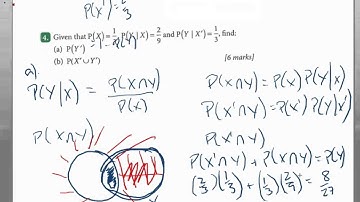 P(X') = 2/3
4. Given that P(X) = 1/3, P(Y | X) = 2/9 and P(Y | X') = 1/3, find:
(a) P(Y') = 1 - P(Y)
(b) P(X' ∪ Y')
[6 marks]
a)
P(Y|X) = P(X∩Y) / P(X)
P(X∩Y)
P(X∩Y) = P(X) P(Y|X)
P(X'∩Y) = P(X') P(Y|X')
P(X'∩Y)
P(X'∩Y) + P(X∩Y) = P(Y)
(2/3)(1/3) + (1/3)(2/9) = 8/27